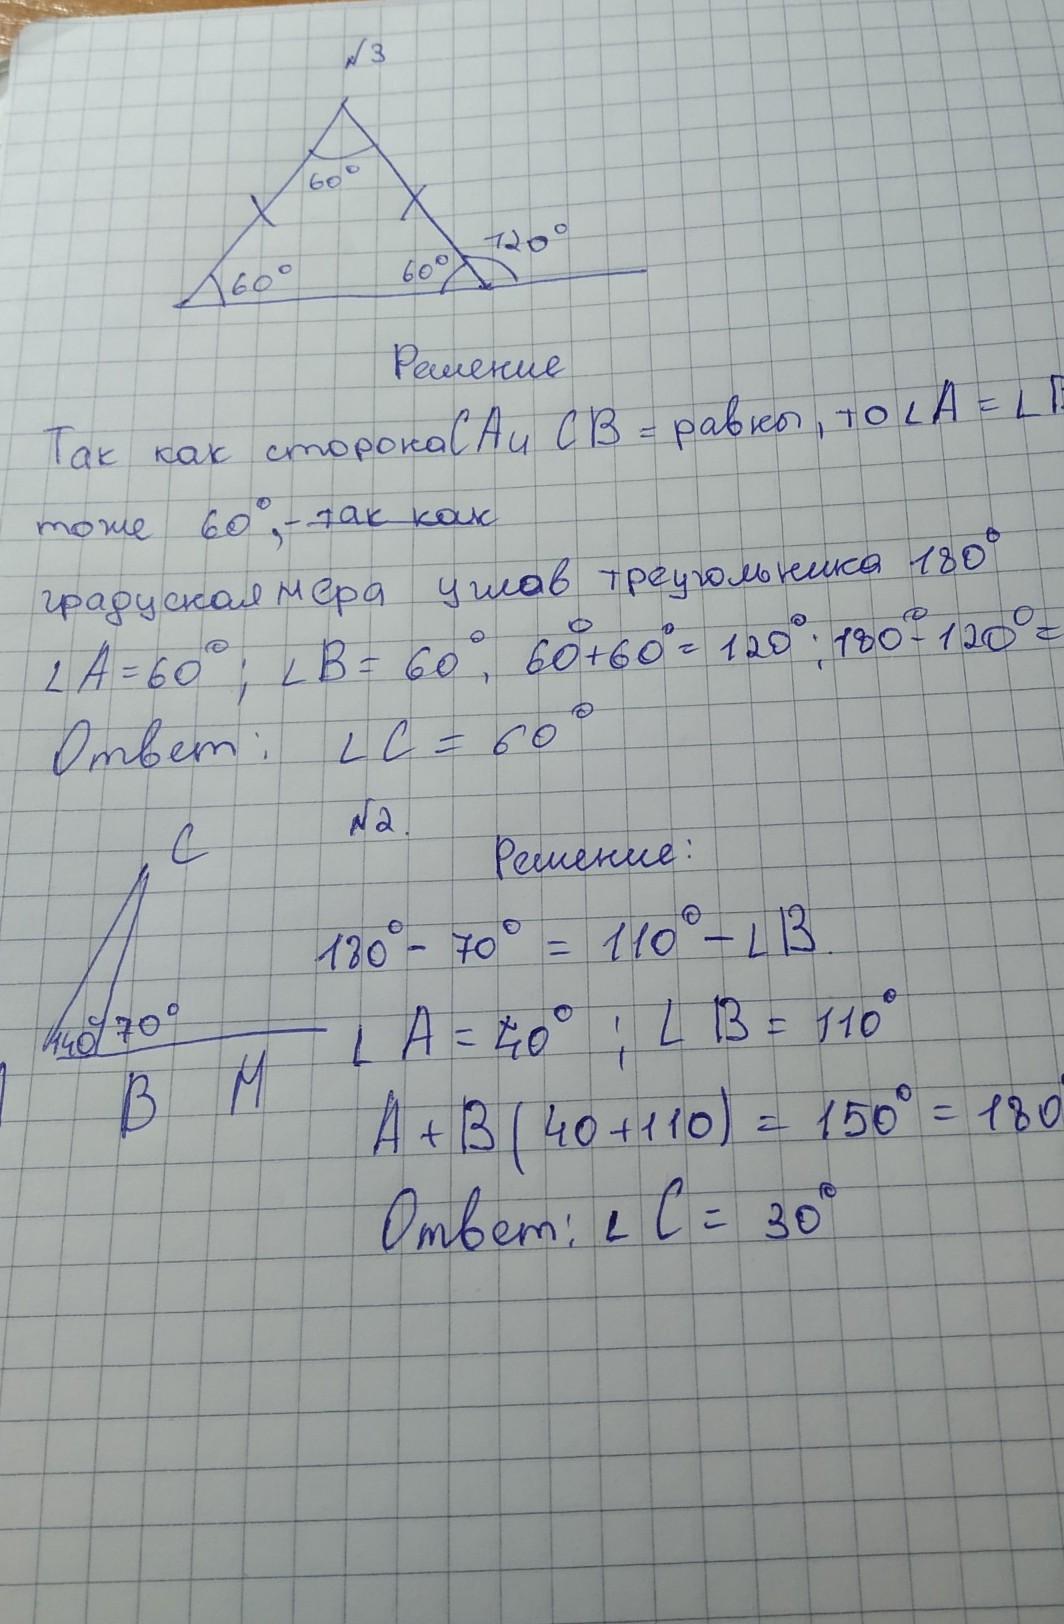 №3
60°
60°
60°
120°
Решение
Так как сторона СА и СВ = равны, то ∠А = ∠В
тоже 60°, так как
градуская мера углав треугольника 180°
∠А = 60°; ∠В = 60°, 60°+60° = 120°; 180° - 120° =
Ответ: ∠С = 60°
№2.
С
Решение:
180° - 70° = 110° - ∠В.
40° 70°
∠А = 40° ; ∠В = 110°
В М
А + В (40+110) = 150° = 180°
Ответ: ∠С = 30°